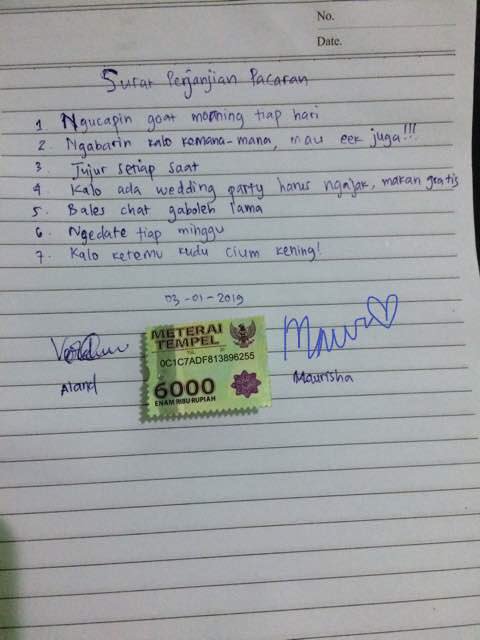 No.
Date.
Surat Perjanjian Pacaran
1. Ngucapin goat morning tiap hari
2. Ngabarin kalo kemana-mana, mau eek juga!!!
3. Jujur setiap saat
4. Kalo ada wedding party harus ngajak, makan gratis
5. Bales chat gaboleh lama
6. Ngedate tiap minggu
7. Kalo ketemu kudu cium kening!
03-01-2019
METERAI
TEMPEL
0C1C7ADF813896255
6000
ENAM RIBU RUPIAH
Aland
Maurisha